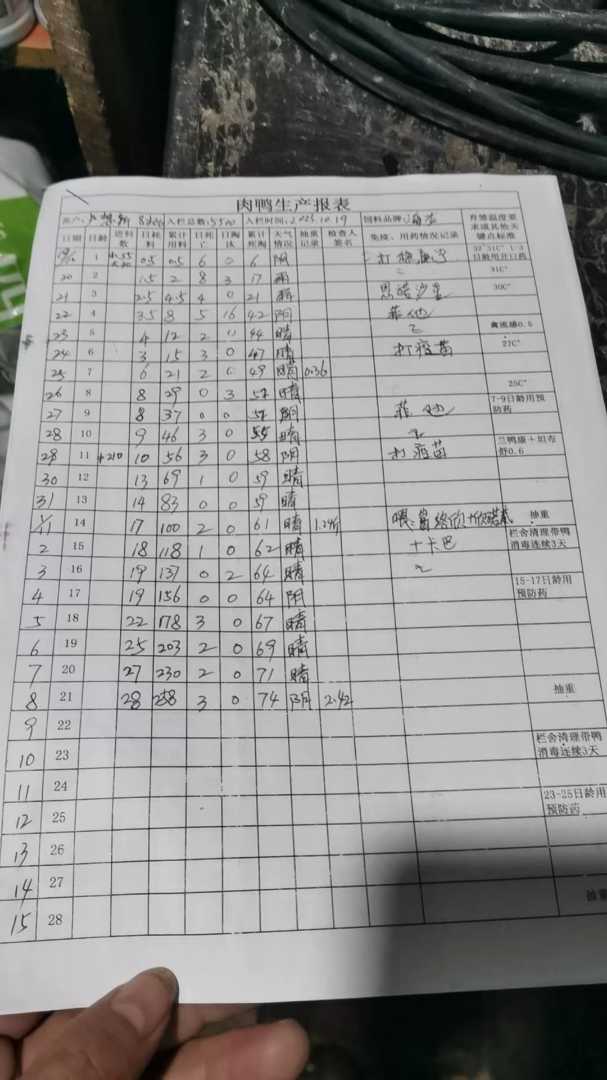 肉鸭生产报表
入栏总数:5500 入栏时间:2023.10.19 饲料品牌: 育雏温度要求或其他关键点标准
日期 日龄 进料数 日耗料 累计用料 日死亡 日淘汰 累计死淘 天气情况 抽重记录 检查人签名 免疫、用药情况记录
1 0.5 0.5 6 0 6 阴 打 32°31C° 1-3日龄用开口药
20 2 1.5 2 8 3 17 31C°
21 3 2.5 4.5 4 0 21 恩诺沙星 30C°
22 4 3.5 8 5 16 42 阴
23 5 4 12 2 0 44 晴 禽流感0.5
24 6 3 15 3 0 47 晴 打疫苗 27C°
25 7 6 21 2 0 49 晴 0.36
26 8 8 29 0 3 52 晴 25C°
27 9 8 37 0 0 52 阴 7-9日龄用预防药
28 10 9 46 3 0 55 晴
28 11 +210 10 56 3 0 58 阴 打疫苗 兰鸭康+坦布舒0.6
30 12 13 69 1 0 59 晴
31 13 14 83 0 0 59 晴
14 17 100 2 0 61 晴 抽重
2 15 18 118 1 0 62 晴 +卡巴 栏舍清理带鸭消毒连续3天
3 16 19 137 0 2 64 晴
4 17 19 156 0 0 64 阴 15-17日龄用预防药
5 18 22 178 3 0 67 晴
6 19 25 203 2 0 69 晴
7 20 27 230 2 0 71 晴
8 21 28 258 3 0 74 阴 2.42 抽重
9 22
10 23 栏舍清理带鸭消毒连续3天
11 24
12 25 23-25日龄用预防药
13 26
14 27
15 28 抽重